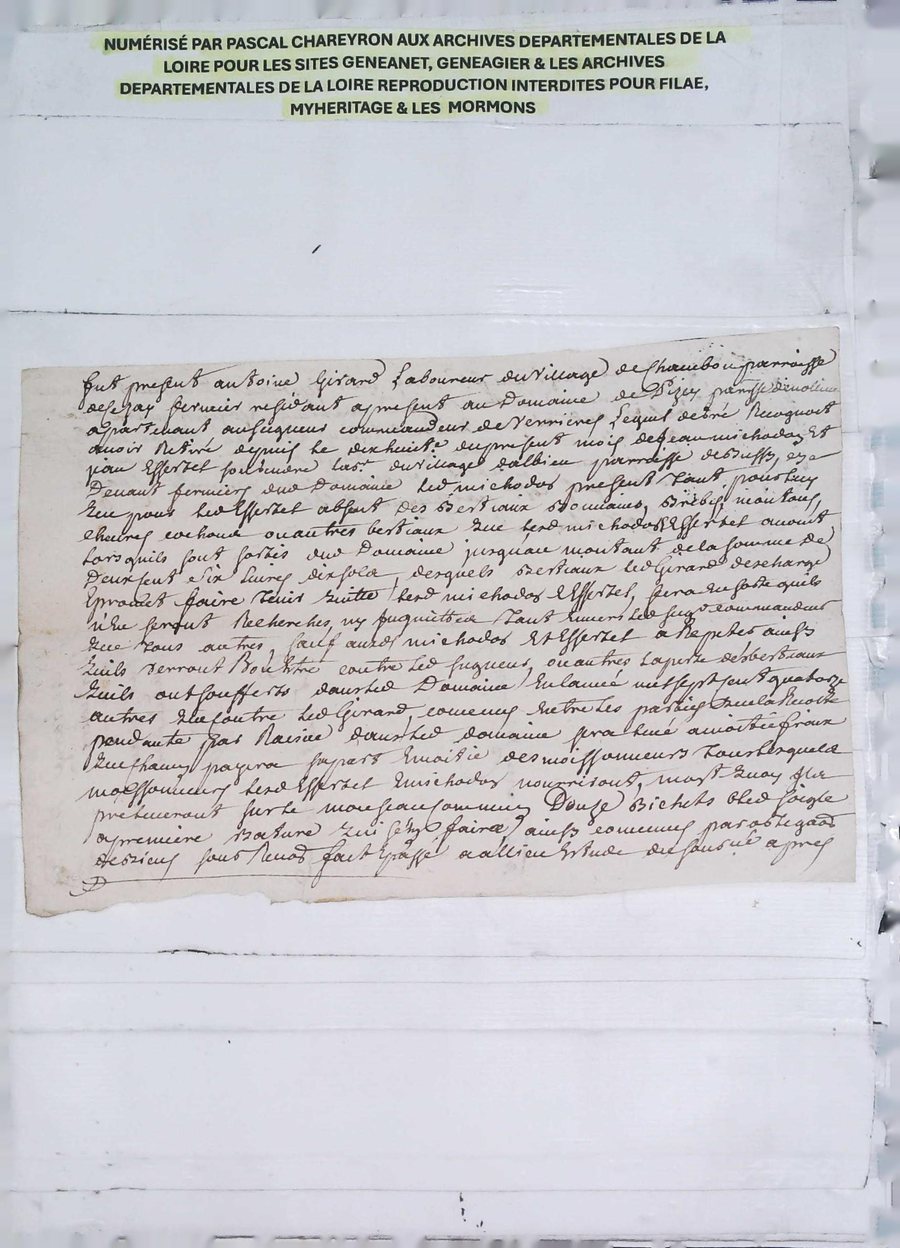 NUMÉRISÉ PAR PASCAL CHAREYRON AUX ARCHIVES DEPARTEMENTALES DE LA
LOIRE POUR LES SITES GENEANET, GENEAGIER & LES ARCHIVES
DEPARTEMENTALES DE LA LOIRE REPRODUCTION INTERDITES POUR FILAE,
MYHERITAGE & LES MORMONS
fut present antoine Girard Laboureur du village de Chambou parroisse
de fermier residant apresent au Domaine de parsse
apartenant au seigneur commandeur de verrieres Lequel de gré Recognoit
avoir Retiré depuis Le dix huite du present mois de jean michodos Et
jean Essertel labr du village dallieu parroisse de
Devant fermiers dud Domaine Led michodos present Tant pour Luy
que pour led Essertel absent des Bertiaux Romains, Brebis, moutons,
chevres cochons ou autres bertiaux que lesd michodos & Essertel avoint
Lors quils sont sortis dud Domaine jusquau montant de la somme de
Deux sent dix livres dix sols, desquels Bertiaux led Girard descharge
& promet faire tenir quitte lesd michodos & Essertel, quils
n'en seront Recherches, ny Inquiettes Tant envers led segr commandeur
que tous autres, sauf auxd michodos Et Essertel a Repeter ainsy
quils verront Bon Etre contre led seigneur, ou autres La perte des bertiaux
quils ont soufferts dans led Domaine En Lannée mil sept sent quatorze
autres contre led Girard, convenu Entre Les parties que la Recolte
pendante par Racine dans led domaine sera Levé a moitié fraix
que chacun payera sa part & moitié des moissonneurs Tous Lesquels
moissonneurs lesd Essertel & michodos nourriront, moyt quoy Ils
preleveront sur le monseau commun Douze Bichets bled seigle
a premiere Bature qui se faira ainsy convenu par
de biens sous Renon fait & passé a allieu Etude du soubné apres